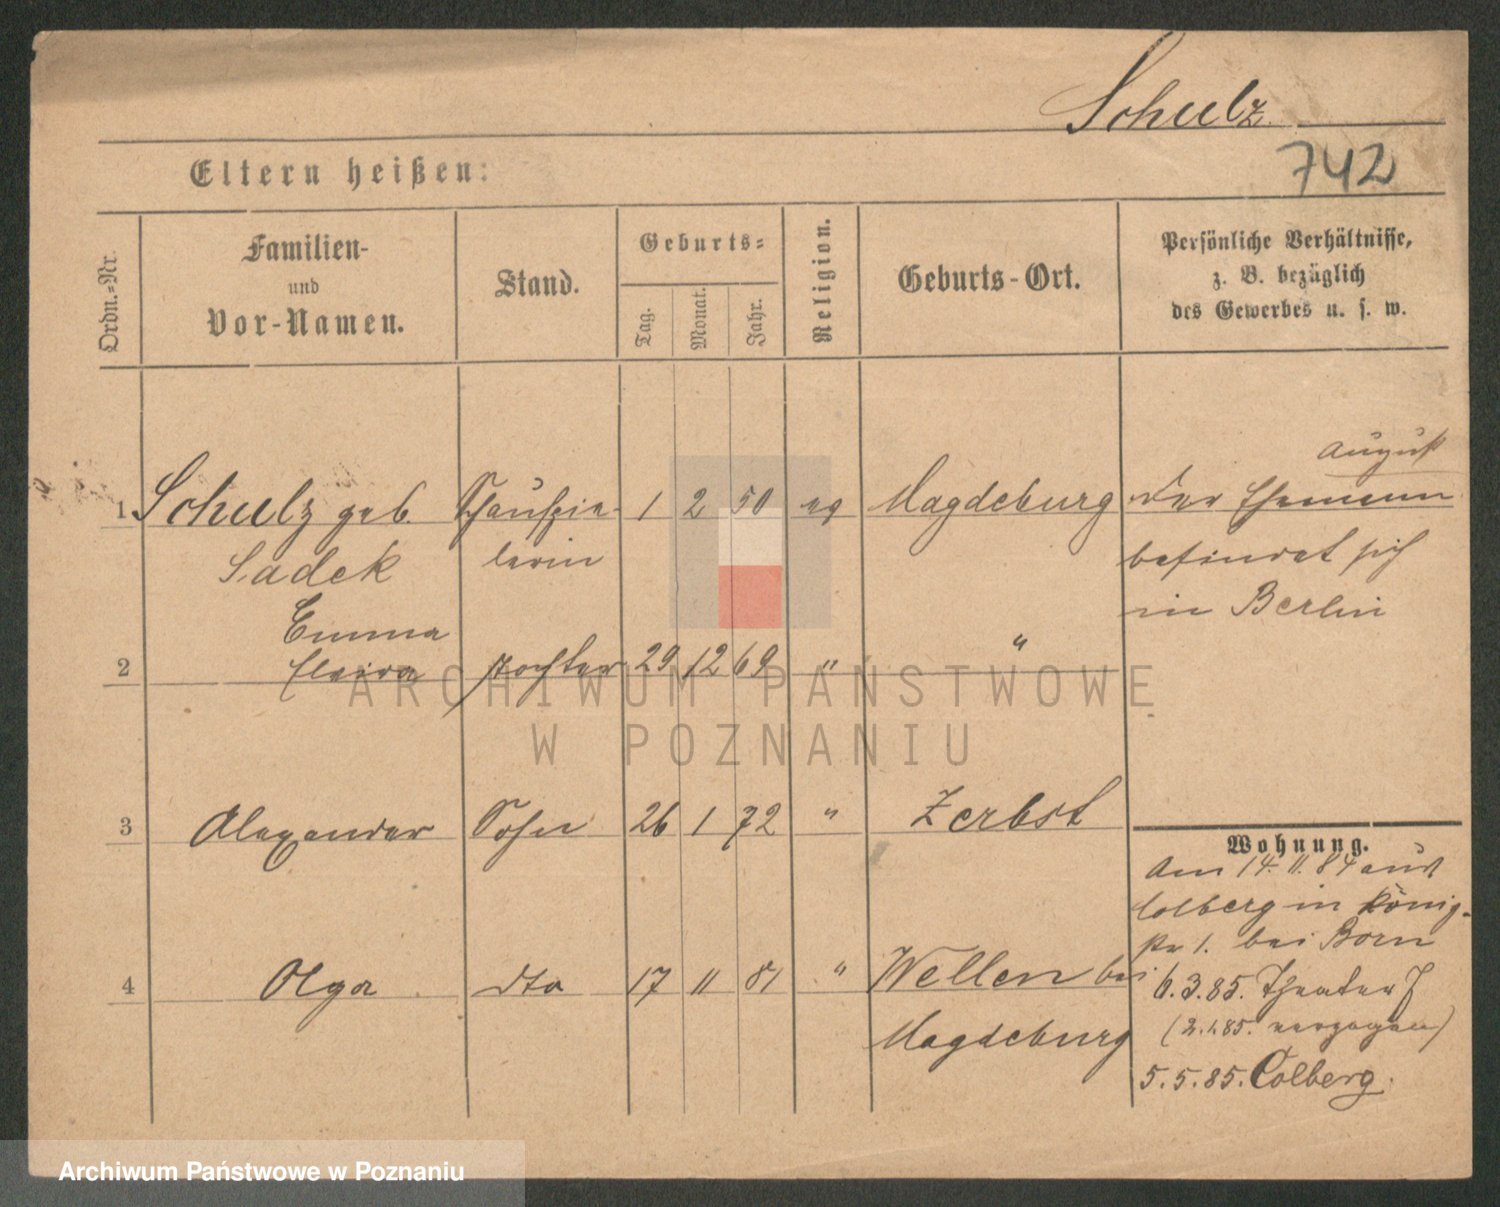 Schulz
742
Eltern heißen:
Ordn.=Nr.
Familien-
und
Vor-Namen.
Stand.
Geburts=
Tag.
Monat.
Jahr.
Religion.
Geburts-Ort.
Persönliche Verhältnisse,
z. B. bezüglich
des Gewerbes u. s. w.
August
1 Schulz geb. Schauspie- 1 2 50 ev Magdeburg Der Ehemann
Sadek lerin befindet sich
Emma in Berlin
2 Tochter 29 12 69 " "
3 Alexander Sohn 26 1 72 " Zerbst
Wohnung.
Am 14. 11. 84 aus
Colberg in König-
str 1. bei Born
4 Olga dto 17 11 81 " Wellen bei
6.3.85. Theaterstr
Magdeburg
(2.1.85. verzogen)
5.5.85. Colberg.
ARCHIWUM PAŃSTWOWE
W POZNANIU
Archiwum Państwowe w Poznaniu